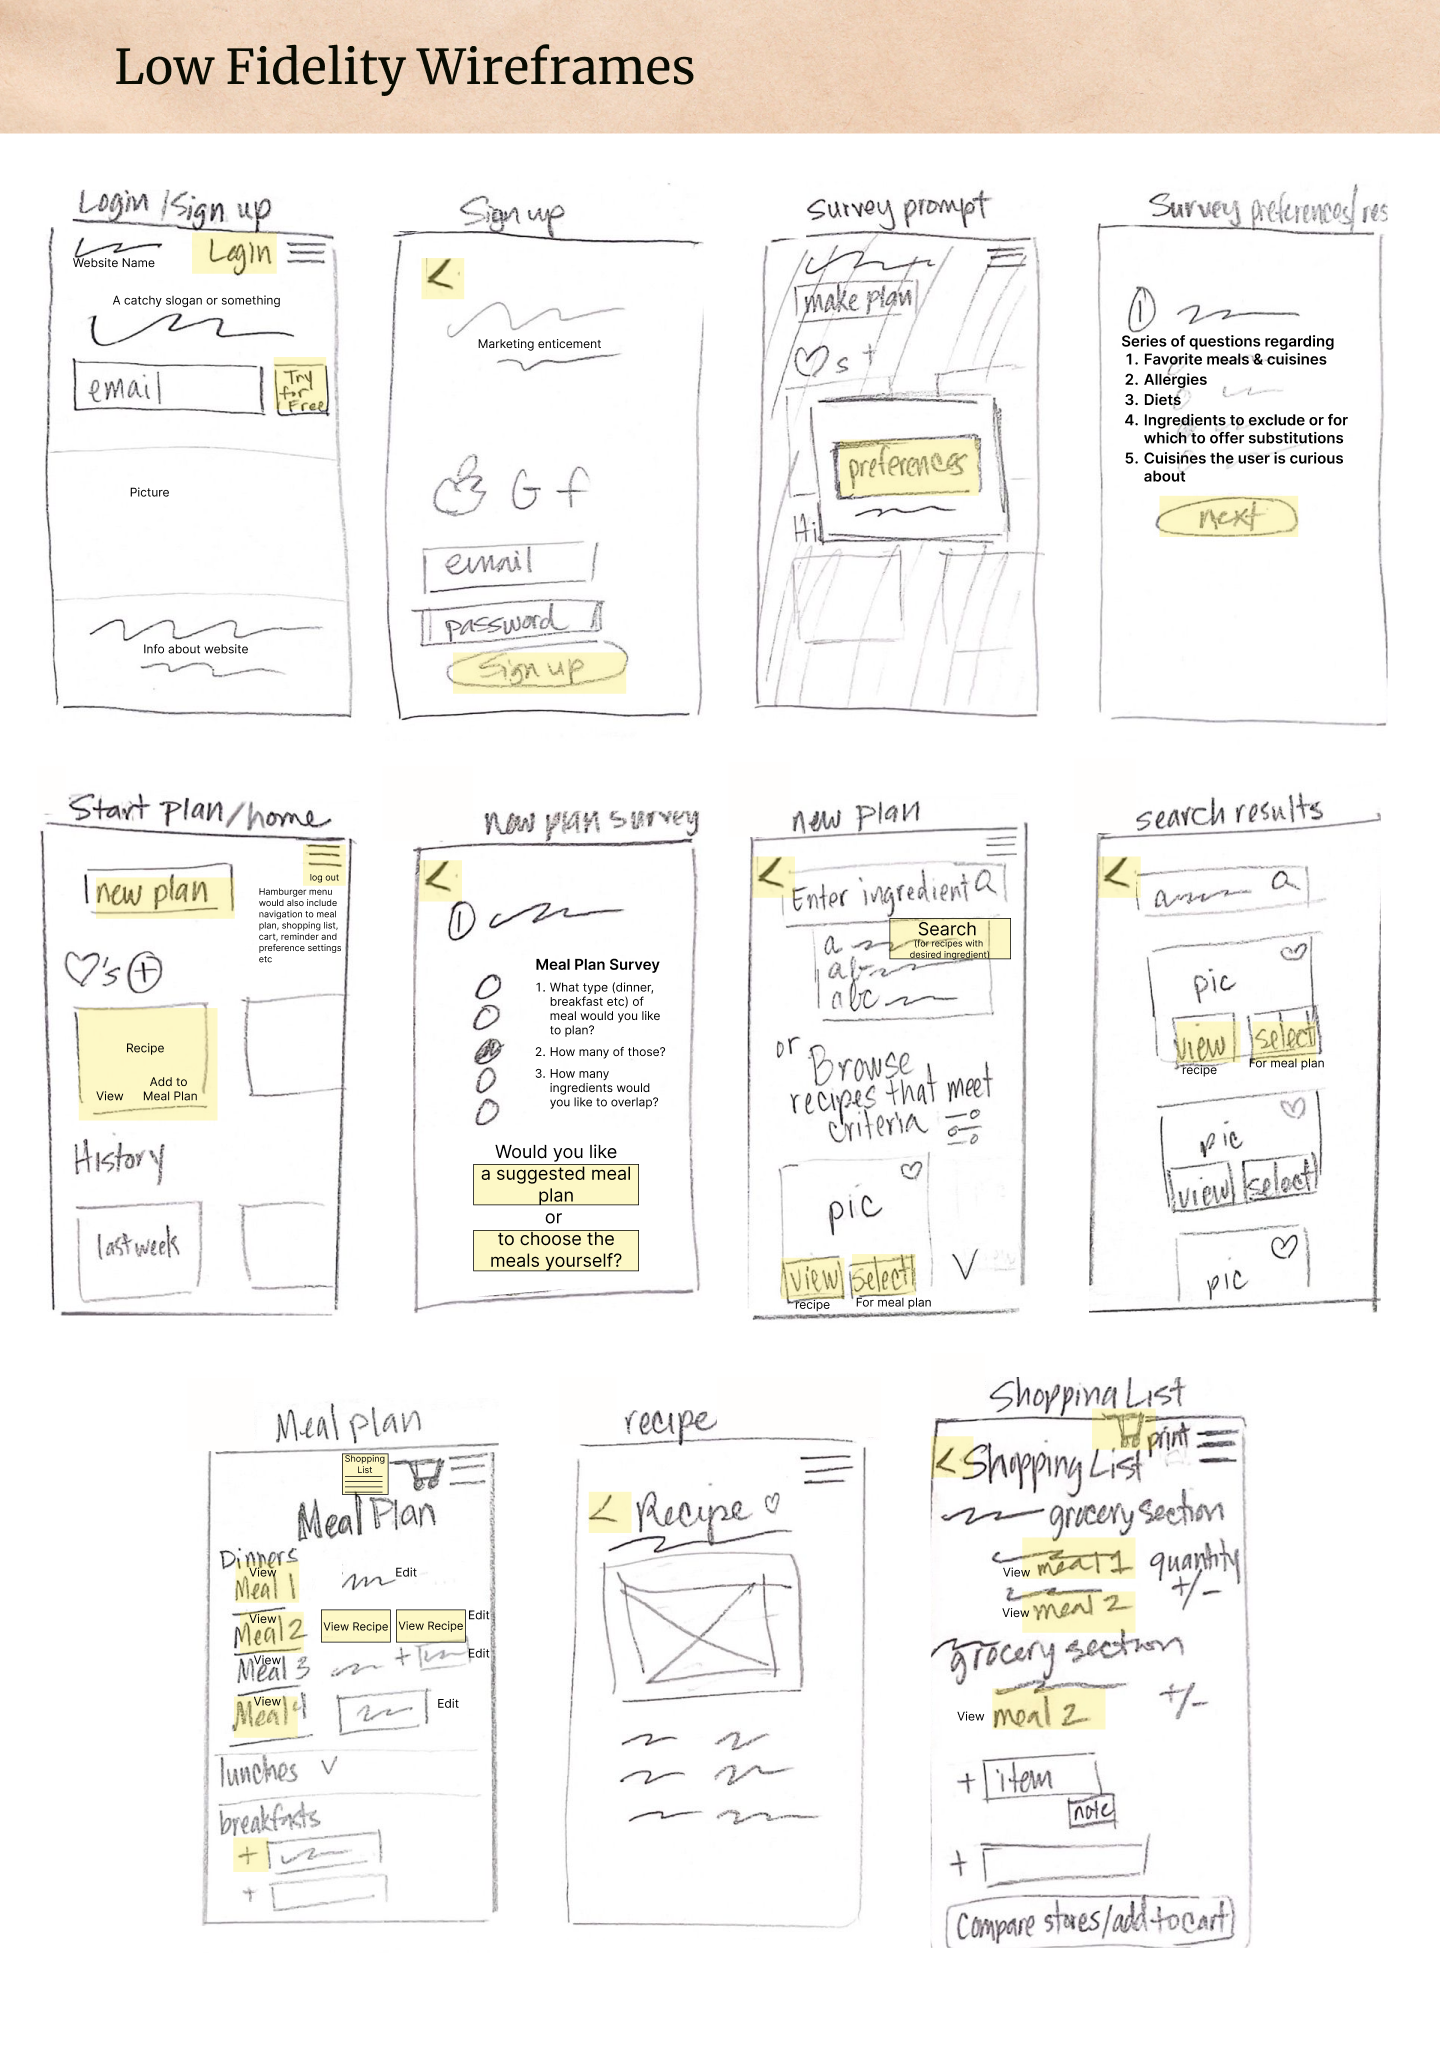 Low Fidelity Wireframes
Login/Sign up
Website Name
Login
A catchy slogan or something
email
Try
for
Free
Picture
Info about website
Sign up
<
Marketing enticement
G f
email
password
Sign up
survey prompt
make plan
s +
preferences
Hi
Survey preferences/res
1
Series of questions regarding
1. Favorite meals & cuisines
2. Allergies
3. Diets
4. Ingredients to exclude or for
which to offer substitutions
5. Cuisines the user is curious
about
next
Start plan/home
new plan
log out
Hamburger menu
would also include
navigation to meal
plan, shopping list,
cart, reminder and
preference settings
etc
♡'s +
Recipe
View
Add to
Meal Plan
History
last week
new plan survey
<
1
Meal Plan Survey
1. What type (dinner,
breakfast etc) of
meal would you like
to plan?
2. How many of those?
3. How many
ingredients would
you like to overlap?
Would you like
a suggested meal
plan
or
to choose the
meals yourself?
new plan
<
Enter ingredient
Search
(for recipes with
desired ingredient)
a
ab
abc
or Browse
recipes that meet
criteria
pic
view select
recipe For meal plan
search results
<
a
pic
view select
recipe For meal plan
pic
view select
pic
Meal plan
Shopping
List
Meal Plan
Dinners
View
Meal 1
Edit
View
Meal 2
View Recipe View Recipe Edit
View
Meal 3 + Edit
View
Meal 4 Edit
lunches V
breakfasts
+
+
recipe
< Recipe
Shopping List
print
< Shopping List
grocery section
View meal 1 quantity
+/-
View meal 2
grocery section
View meal 2 +/-
+ item
note
+
Compare stores/add to cart